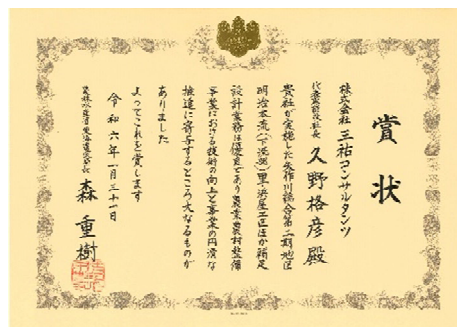 賞状
株式会社 三祐コンサルタンツ
代表取締役社長 久野格彦 殿
貴社が実施した矢作川総合第二期地区
明治本流(下流部)
設計業務は優良であり農業農村整備
事業における技術の向上と事業の円滑な
推進に寄与するところ大なるものが
ありました
よってこれを賞します
令和六年一月三十一日
森 重樹